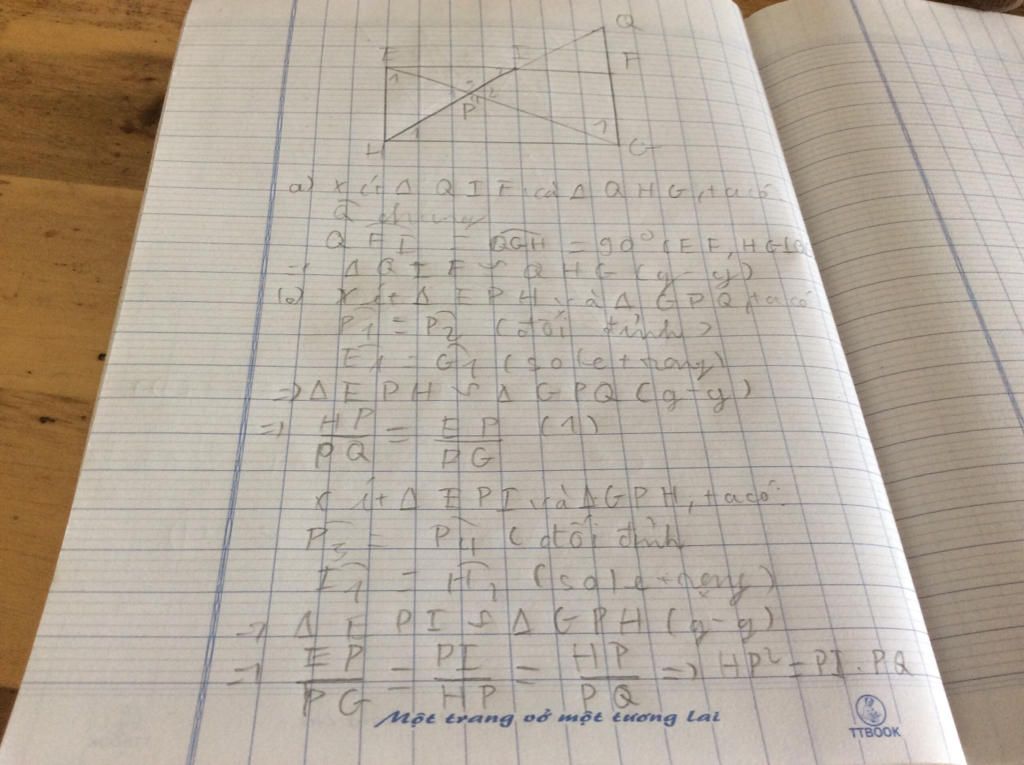 Q
E I F
1 1
P 1 2
1 1
H G
a) Xét Δ QIF và Δ QHG, ta có:
Q chung
QFI = QGH = 90° (EF, HG
=> Δ QIF ∽ QHG (g-g)
b) Xét Δ EPH và Δ GPQ, ta có
P1 = P2 (đối đỉnh)
E1 = G1 (so le trong)
=> Δ EPH ∽ Δ GPQ (g-g)
=> HP/PQ = EP/PG (1)
Xét Δ EPI và Δ GPH, ta có:
P3 = P4 (đối đỉnh
I1 = H1 (so le trong)
=> Δ EPI ∽ Δ GPH (g-g)
=> EP/PG = PI/HP = HP/PQ => HP² = PI . PQ
Một trang vở một tương lai
TTBOOK